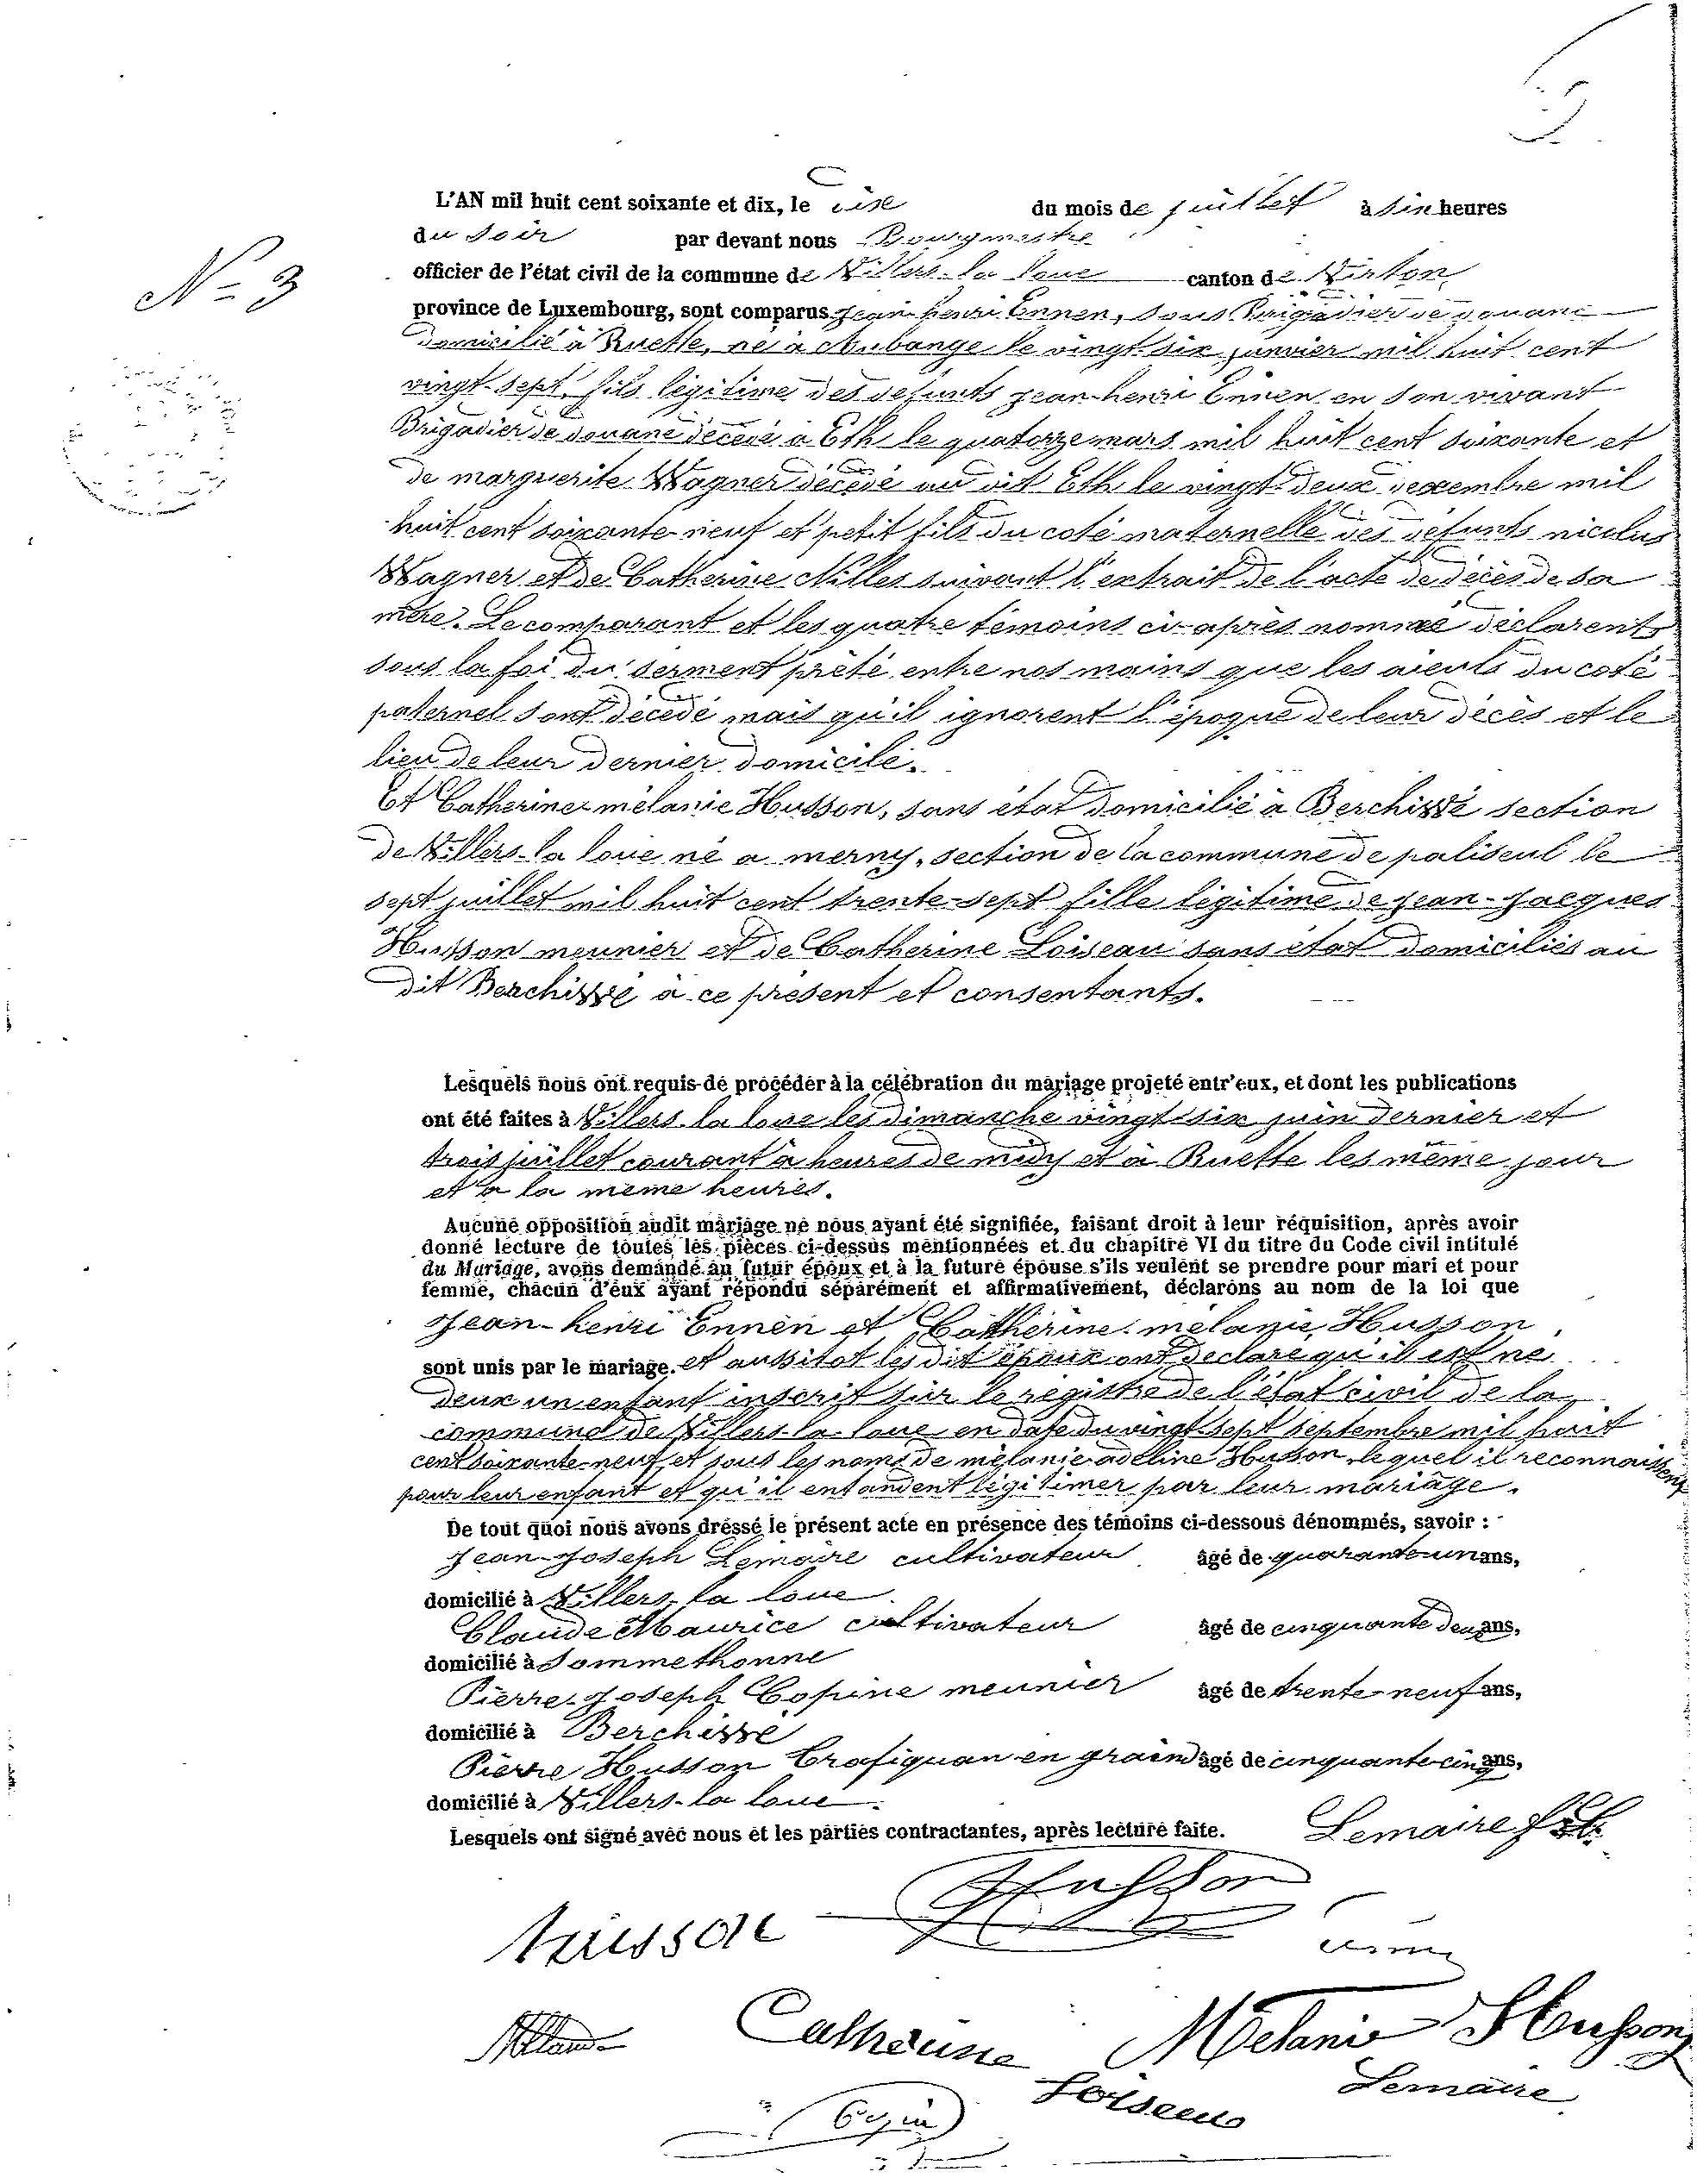 L'AN mil huit cent soixante et dix, le dise du mois de juillet à six heures
du soir par devant nous Bourgmestre
officier de l'état civil de la commune de Villers-la-loue canton de Virton
N° 3
province de Luxembourg, sont comparus Jean henri Ennen, sous Brigadier de douane
domicilié à Ruette, né à Aubange le vingt-six janvier mil huit cent
vingt-sept, fils légitime des defunts jean-henri Ennen en son vivant
Brigadier de douane décédé à Eth le quatorze mars mil huit cent soixante et
de marguerite Wagner décédé au dit Eth le vingt-deux decembre mil
huit cent soixante-neuf et petit fils du coté maternelle des défunts nicolas
Wagner et de Catherine Nilles suivant l'extrait de l'acte de décès de sa
mère. Le comparant et les quatre témoins ci-après nommé déclarent
sous la foi du serment prêté entre nos mains que les aieuls du coté
paternel sont décédé mais qu'il ignorent l'époque de leur décès et le
lieu de leur dernier domicile.
Et Catherine mélanie Husson, sans état domicilié à Berchissé section
de Villers-la loue né a merny, section de la commune de paliseul le
sept juillet mil huit cent trente-sept fille légitime de jean-jacques
Husson meunier et de Catherine Loiseau sans état domiciliés au
dit Berchissé à ce présent et consentants.
Lesquels nous ont requis de procéder à la célébration du mariage projeté entr'eux, et dont les publications
ont été faites à Villers-la loue les dimanche vingt-six juin dernier et
trois juillet courant à heures de midy et à Ruette les même jour
et à la meme heures.
Aucune opposition audit mariage ne nous ayant été signifiée, faisant droit à leur réquisition, après avoir
donné lecture de toutes les pièces ci-dessus mentionnées et du chapitre VI du titre du Code civil intitulé
du Mariage, avons demandé au futur époux et à la future épouse s'ils veulent se prendre pour mari et pour
femme, chacun d'eux ayant répondu séparément et affirmativement, déclarons au nom de la loi que
Jean-henri Ennen et Cathérine mélanie Husson
sont unis par le mariage. et aussitot les dit époux ont declaré qu'il est né
deux un enfant inscrit sur le registre de l'état civil de la
commune de Villers-la-loue en date du vingt-sept septembre mil huit
cent soixante-neuf et sous les noms de mélanie adéline Husson lequel il reconnaissent
pour leur enfant et qu'il entandent légitimer par leur mariage.
De tout quoi nous avons dressé le présent acte en présence des témoins ci-dessous dénommés, savoir :
Jean-Joseph Lemaire cultivateur âgé de quarante-un ans,
domicilié à Villers-la loue
Claude Maurice cultivateur âgé de cinquante deux ans,
domicilié à Sommethonne
Pierre-Joseph Copine meunier âgé de trente-neuf ans,
domicilié à Berchissé
Pierre Husson Trafiquan en grain âgé de cinquante-cinq ans,
domicilié à Villers-la loue
Lesquels ont signé avec nous et les parties contractantes, après lecture faite.
Lemaire
Husson
husson
Catherine Melanie Husson
Loiseau Lemaire